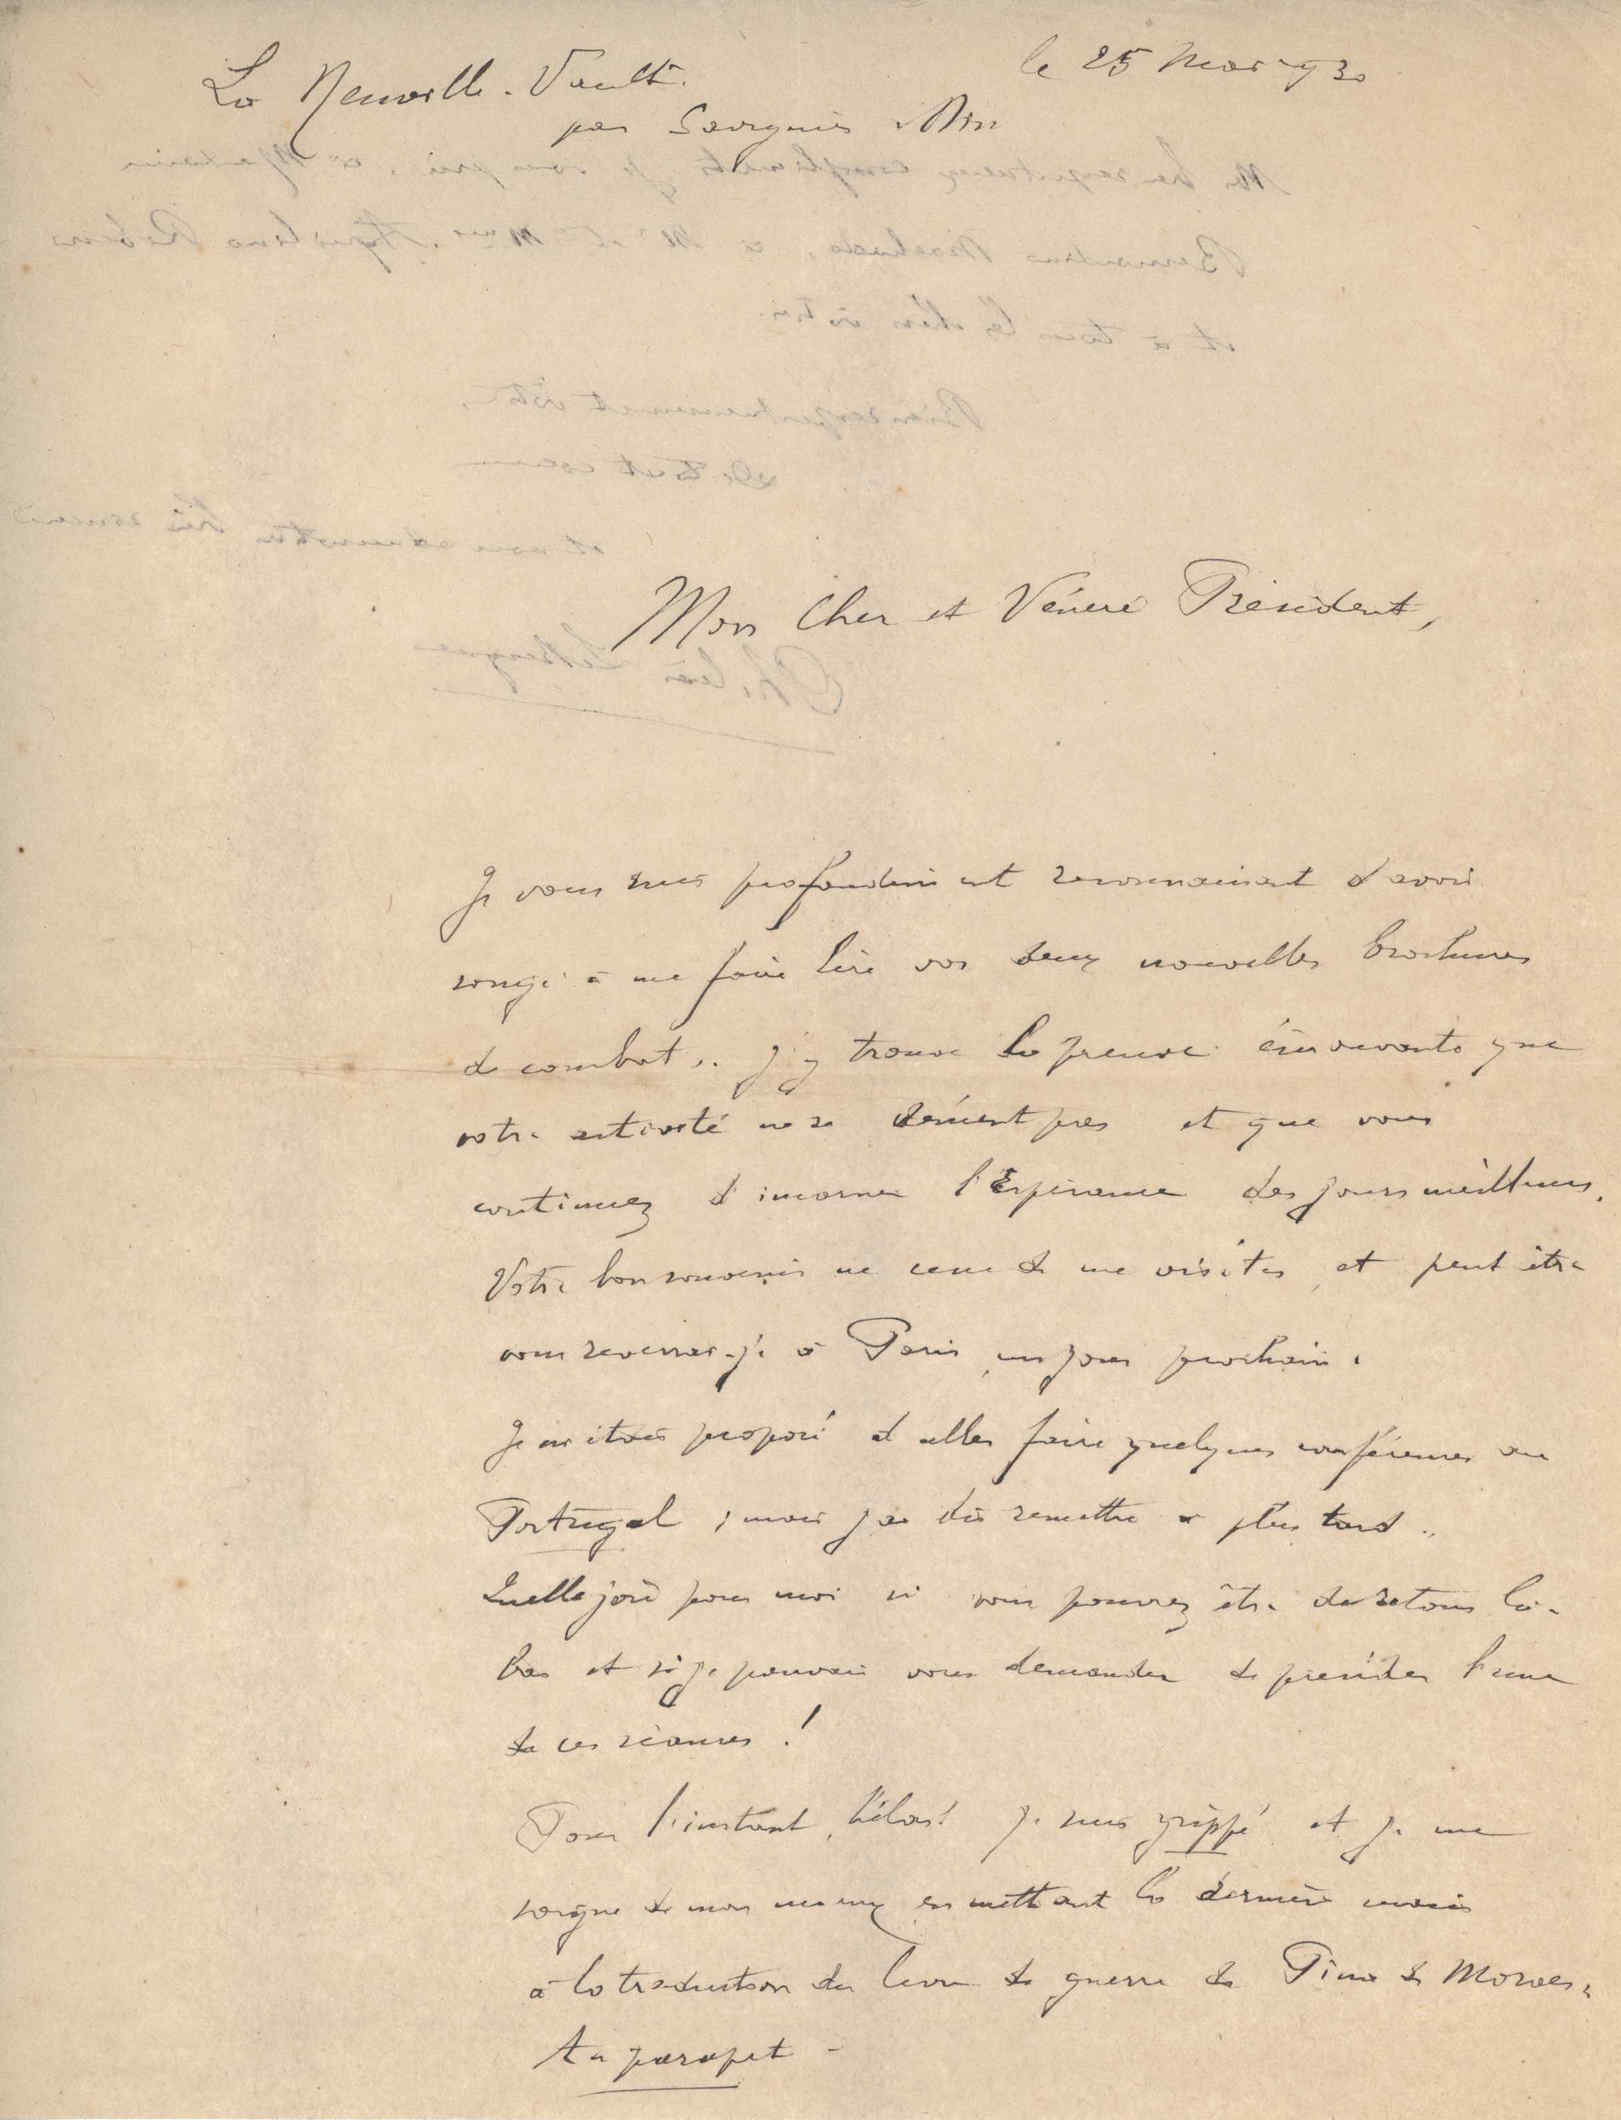 La Neuville-Vault
par Savignies Oise
le 25 Mars 930
Mon Cher et Vénéré Président,
Je vous suis profondément reconnaissant d'avoir
songé à me faire lire vos deux nouvelles brochures
de combat. J'y trouve la preuve émouvante que
votre activité ne se dément pas et que vous
continuez d'incarner l'Espérance des jours meilleurs.
Votre bon souvenir ne cesse de me visiter, et peut être
vous reverrai-je à Paris un jour prochain.
Je m'étais proposé d'aller faire quelques conférences au
Portugal ; mais j'ai dû remettre à plus tard.
Quelle joie pour moi si vous pouvez être de retour là-
bas et si je pouvais vous demander de présider l'une
de ces séances !
Pour l'instant, hélas! je suis grippé et je me
soigne de mon mieux en mettant la dernière main
à la traduction du livre de guerre de Pina de Moraes,
Au parapet -